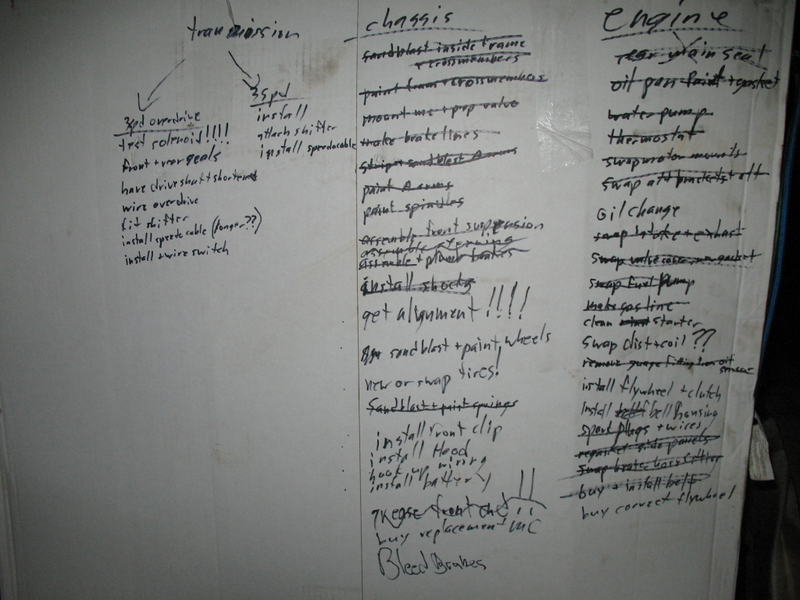 transmission
3spd overdrive
test solenoid!!!!
front + rear seals
have driveshaft shortened
wire overdrive
fit shifter
install speedo cable (longer??)
install + wire switch
3spd
install
attach shifter
install speedo cable
chassis
sandblast inside frame
+ crossmembers
paint frame + crossmembers
mount mc + prop valve
make brake lines
strip + sandblast A arms
paint A arms
paint spindles
assemble front suspension
assemble steering
assemble + plumb brakes
install shocks
get alignment!!!!
sandblast + paint wheels
new or swap tires?
Sandblast + paint springs
install front clip
install Hood
hook up wiring
install battery
grease front end!!
buy replacement MC
Bleed Brakes
engine
rear main seal
oil pan paint + gasket
water pump
thermostat
swap motor mounts
swap alt brackets + alt
oil change
swap intake + exhast
swap valve cover
swap fuel pump
make gas line
clean starter
swap dist + coil??
install flywheel + clutch
install bell housing
spark plugs + wires
side panels
buy + install belt
buy correct flywheel